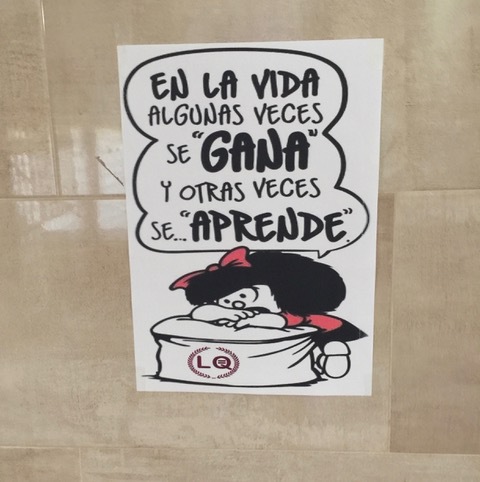 EN LA VIDA
ALGUNAS VECES
SE "GANA"
Y OTRAS VECES
SE... "APRENDE".
LQ